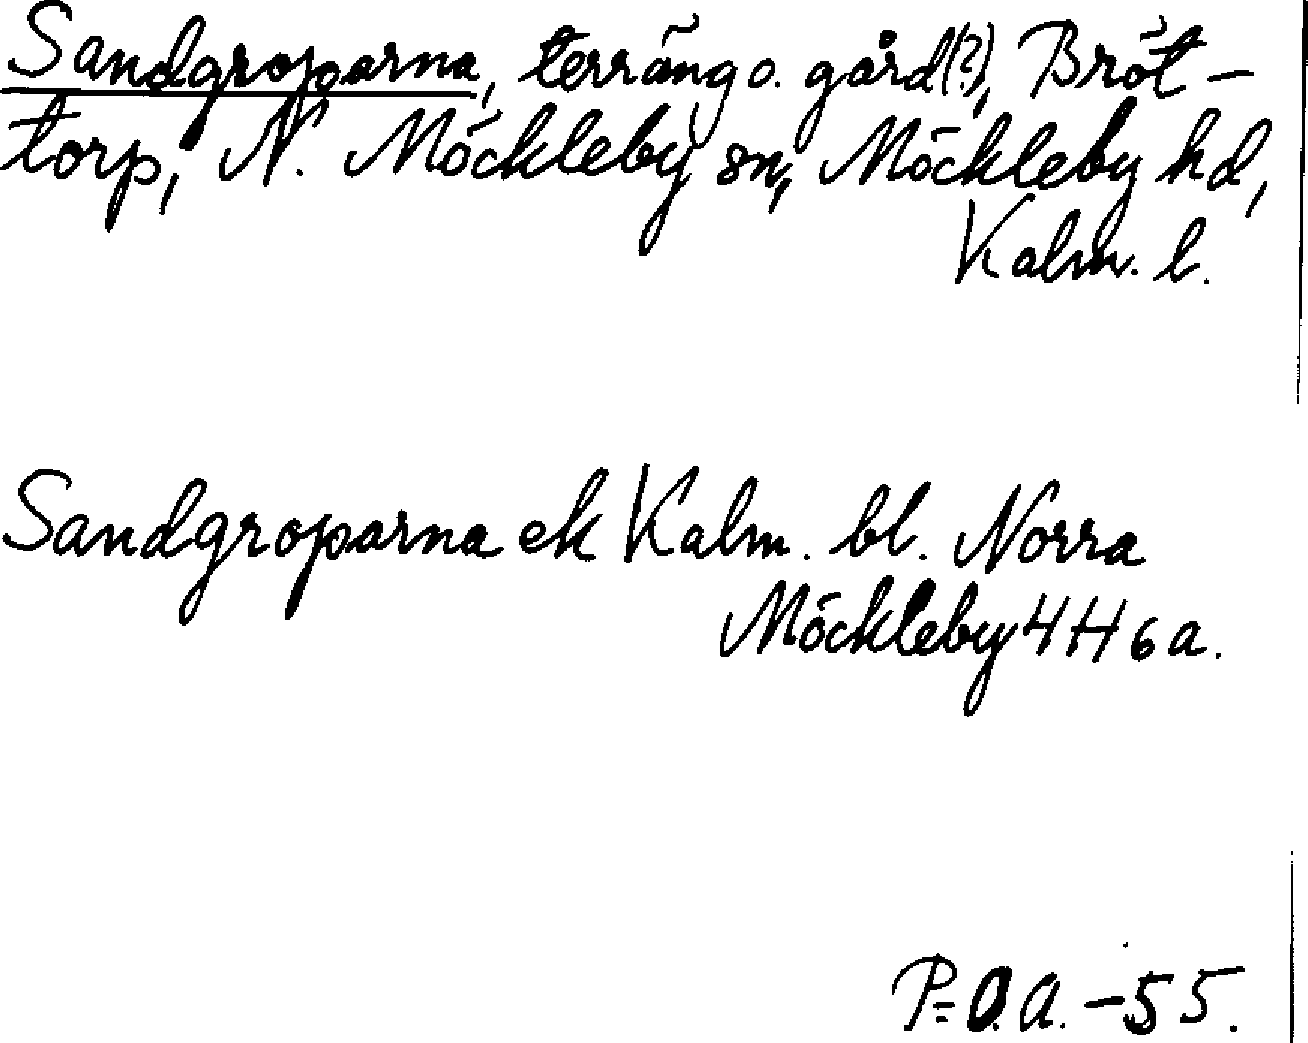 Sandgroparna, terräng o. gård(?), Bröt-
torp, N. Möckleby sn, Möckleby hd,
Kalm. l.
Sandgroparna ek Kalm. bl. Norra
Möckleby 4H6a.
P=O.A. -55.